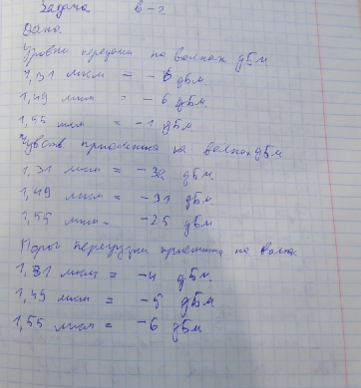 Задача в-2
Дано
Уровни передачи на волнах дБм
1,31 мкм = -6 дБм.
1,49 мкм = -6 дБм.
1,55 мкм = -1 дБм.
Чувств приемника на волнах дБм
1,31 мкм = -32 дБм.
1,49 мкм = -31 дБм.
1,55 мкм - -25 дБм
Порог перегрузки приемника на волнах
1,31 мкм = -4 дБм.
1,49 мкм = -5 дБм.
1,55 мкм = -6 дБм